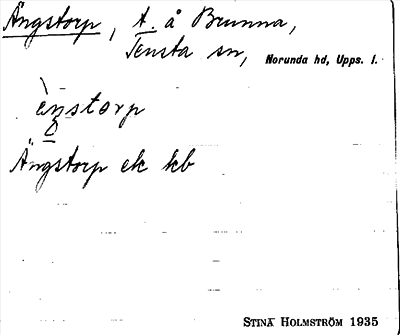 Ängstorp, t. å Brunna,
Tensta sn, Norunda hd, Upps. l.
ä̀ŋstorp
Ängstorp ek kb
STINA HOLMSTRÖM 1935